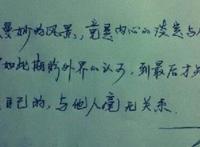 曼妙的风景，竟是内心的淡定与
如此期盼外界的认可，到最后才
自己的，与他人毫无关系